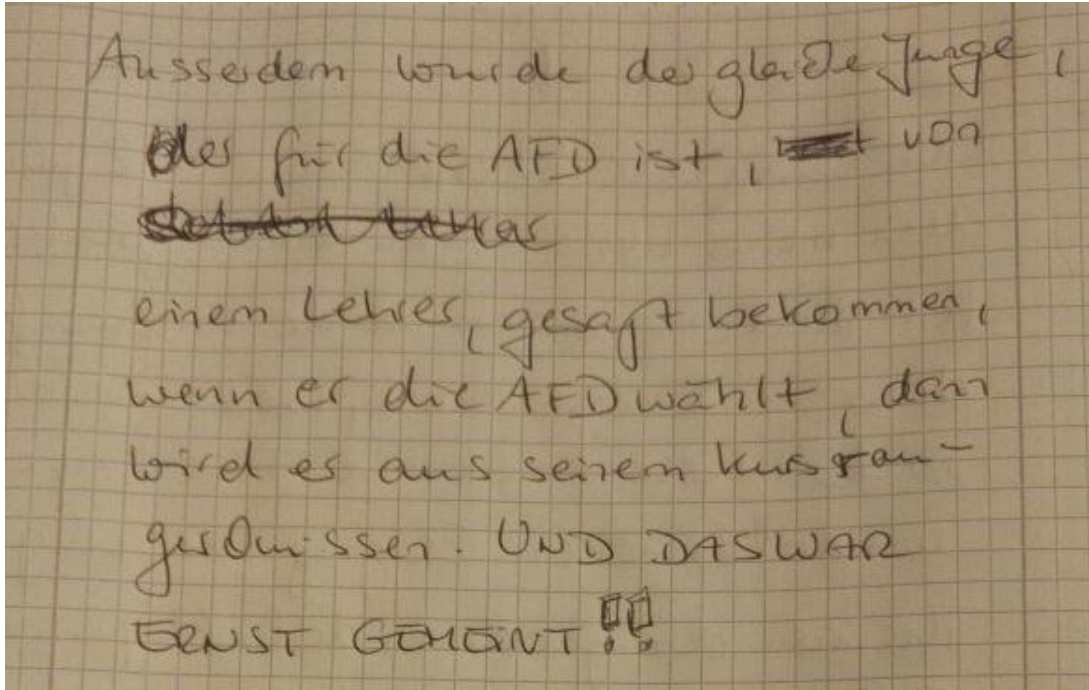 Ausserdem wurde der gleiche Junge,
der für die AFD ist, von
einem Lehrer, gesagt bekommen,
wenn er die AFD wählt, dann
wird er aus seinem Kurs rau-
geschmissen. UND DAS WAR
ERNST GEMEINT!!